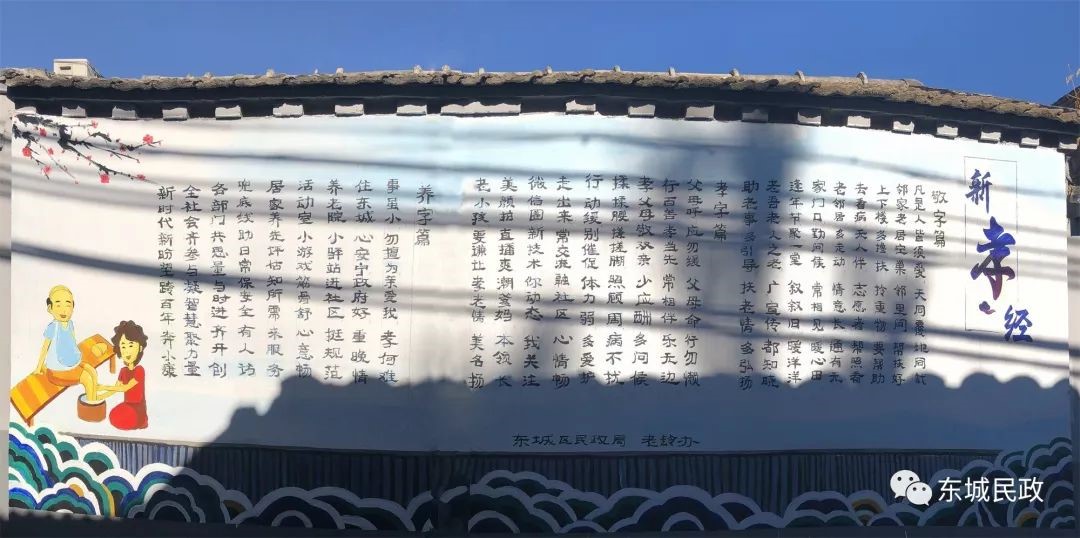 新孝经
敬字篇
凡是人 皆须爱 天同覆 地同载
邻家老 居空巢 邻里间 帮扶好
上下楼 多搀扶 拎重物 要帮助
去看病 无人伴 志愿者 帮照看
老邻居 多走动 情意长 通有无
家门口 勤问候 常相见 暖心田
逢年节 聚一堂 叙叙旧 暖洋洋
老吾老 人之老 广宣传 都知晓
助老事 多引导 扶老情 多弘扬
孝字篇
父母呼 应勿缓 父母命 行勿懒
行百善 孝当先 常相伴 乐无边
孝父母 敬双亲 少应酬 多问候
揉揉腰 搓搓脚 照顾周 病不扰
行动缓 别催促 体力弱 多爱护
走出来 常交流 融社区 心情畅
微信圈 新技术 你动态 我关注
美颜拍 直播爽 潮爹妈 本领长
老小孩 要谦让 孝老儒 美名扬
养字篇
事虽小 勿擅为 亲爱我 孝何难
住东城 心安宁 政府好 重晚情
养老院 小驿站 进社区 挺规范
活动室 小游戏 筋骨舒 心意畅
居家养 先评估 知所需 来服务
兜底线 助日常 保安全 有人访
各部门 共思量 与时进 齐开创
全社会 齐参与 凝智慧 聚力量
新时代 新助望 跨百年 奔小康
东城区民政局 老龄办
东城民政